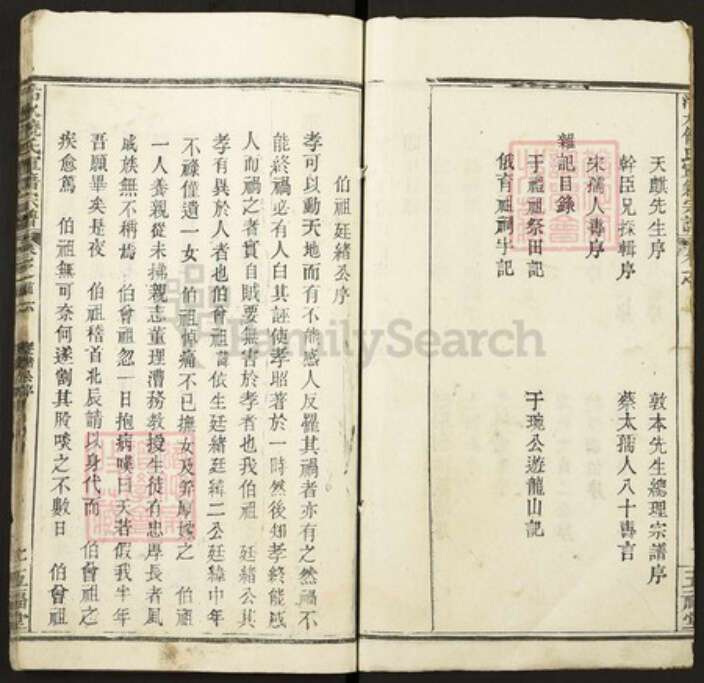 天麒先生序 敦本先生總理宗譜序
幹臣兄採輯序 蔡太孺人八十壽言
宋孺人壽序
雜記目錄
于禮祖祭田記 于琬公遊龍山記
俄育祖祠宇記
五福堂
伯祖廷緒公序
孝可以動天地而有不能感人反罹其禍者亦有之然禍不
能終禍必有人白其誣使孝昭著於一時然後知孝終能感
人而禍之者實自賊要無害於孝者也我伯祖 廷緒公其
孝有異於人者也伯曾祖諱依生廷緒廷緯二公廷緯中年
不祿僅遺一女 伯祖悼痛不已撫女及笄厚嫁之 伯祖
一人養親從未拂親志董理漕務教授生徒有忠厚長者風
戚族無不稱焉 伯曾祖忽一日抱病嘆曰天若假我半年
吾願畢矣是夜 伯祖稽首北辰請以身代而 伯曾祖之
疾愈篤 伯祖無可奈何遂割其股啖之不數日 伯曾祖
五福堂
FamilySearch